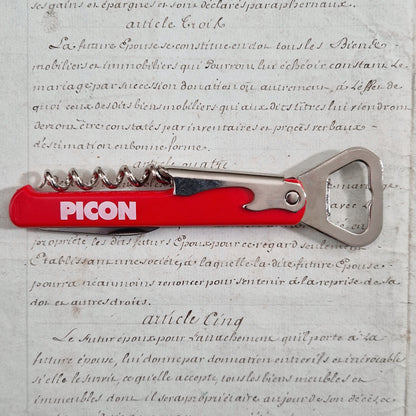 ses gains et épargnes et sont déclarés paraphernaux.
article Trois
La future Epouse se constitue en dot tous les Biens
mobiliers et immobiliers qui Pourront lui échéoir constant Le
mariage par succession donation ou autrement, à L'effet de
quoi ceux des dits biens mobiliers qui aux dits titres lui viendront
devront être constatés par inventaires et procès verbaux
destimation en bonne forme.
article quatre
PICON
propriété des dits futurs Epoux pour ce regard seulement
Etablissant une société à laquelle la dite future Epouse
pourra néanmoins renoncer pour s'en tenir à la reprise de sa
dot et autres droits.
article Cinq
Le futur époux pour L'attachement qu'il porte à La
future épouse, lui donne par donnation entre vifs et irrévocable
s'il elle le survit, ce qu'elle accepte, tous les biens meubles et
immeubles dont il sera propriétaire au jour de son décès